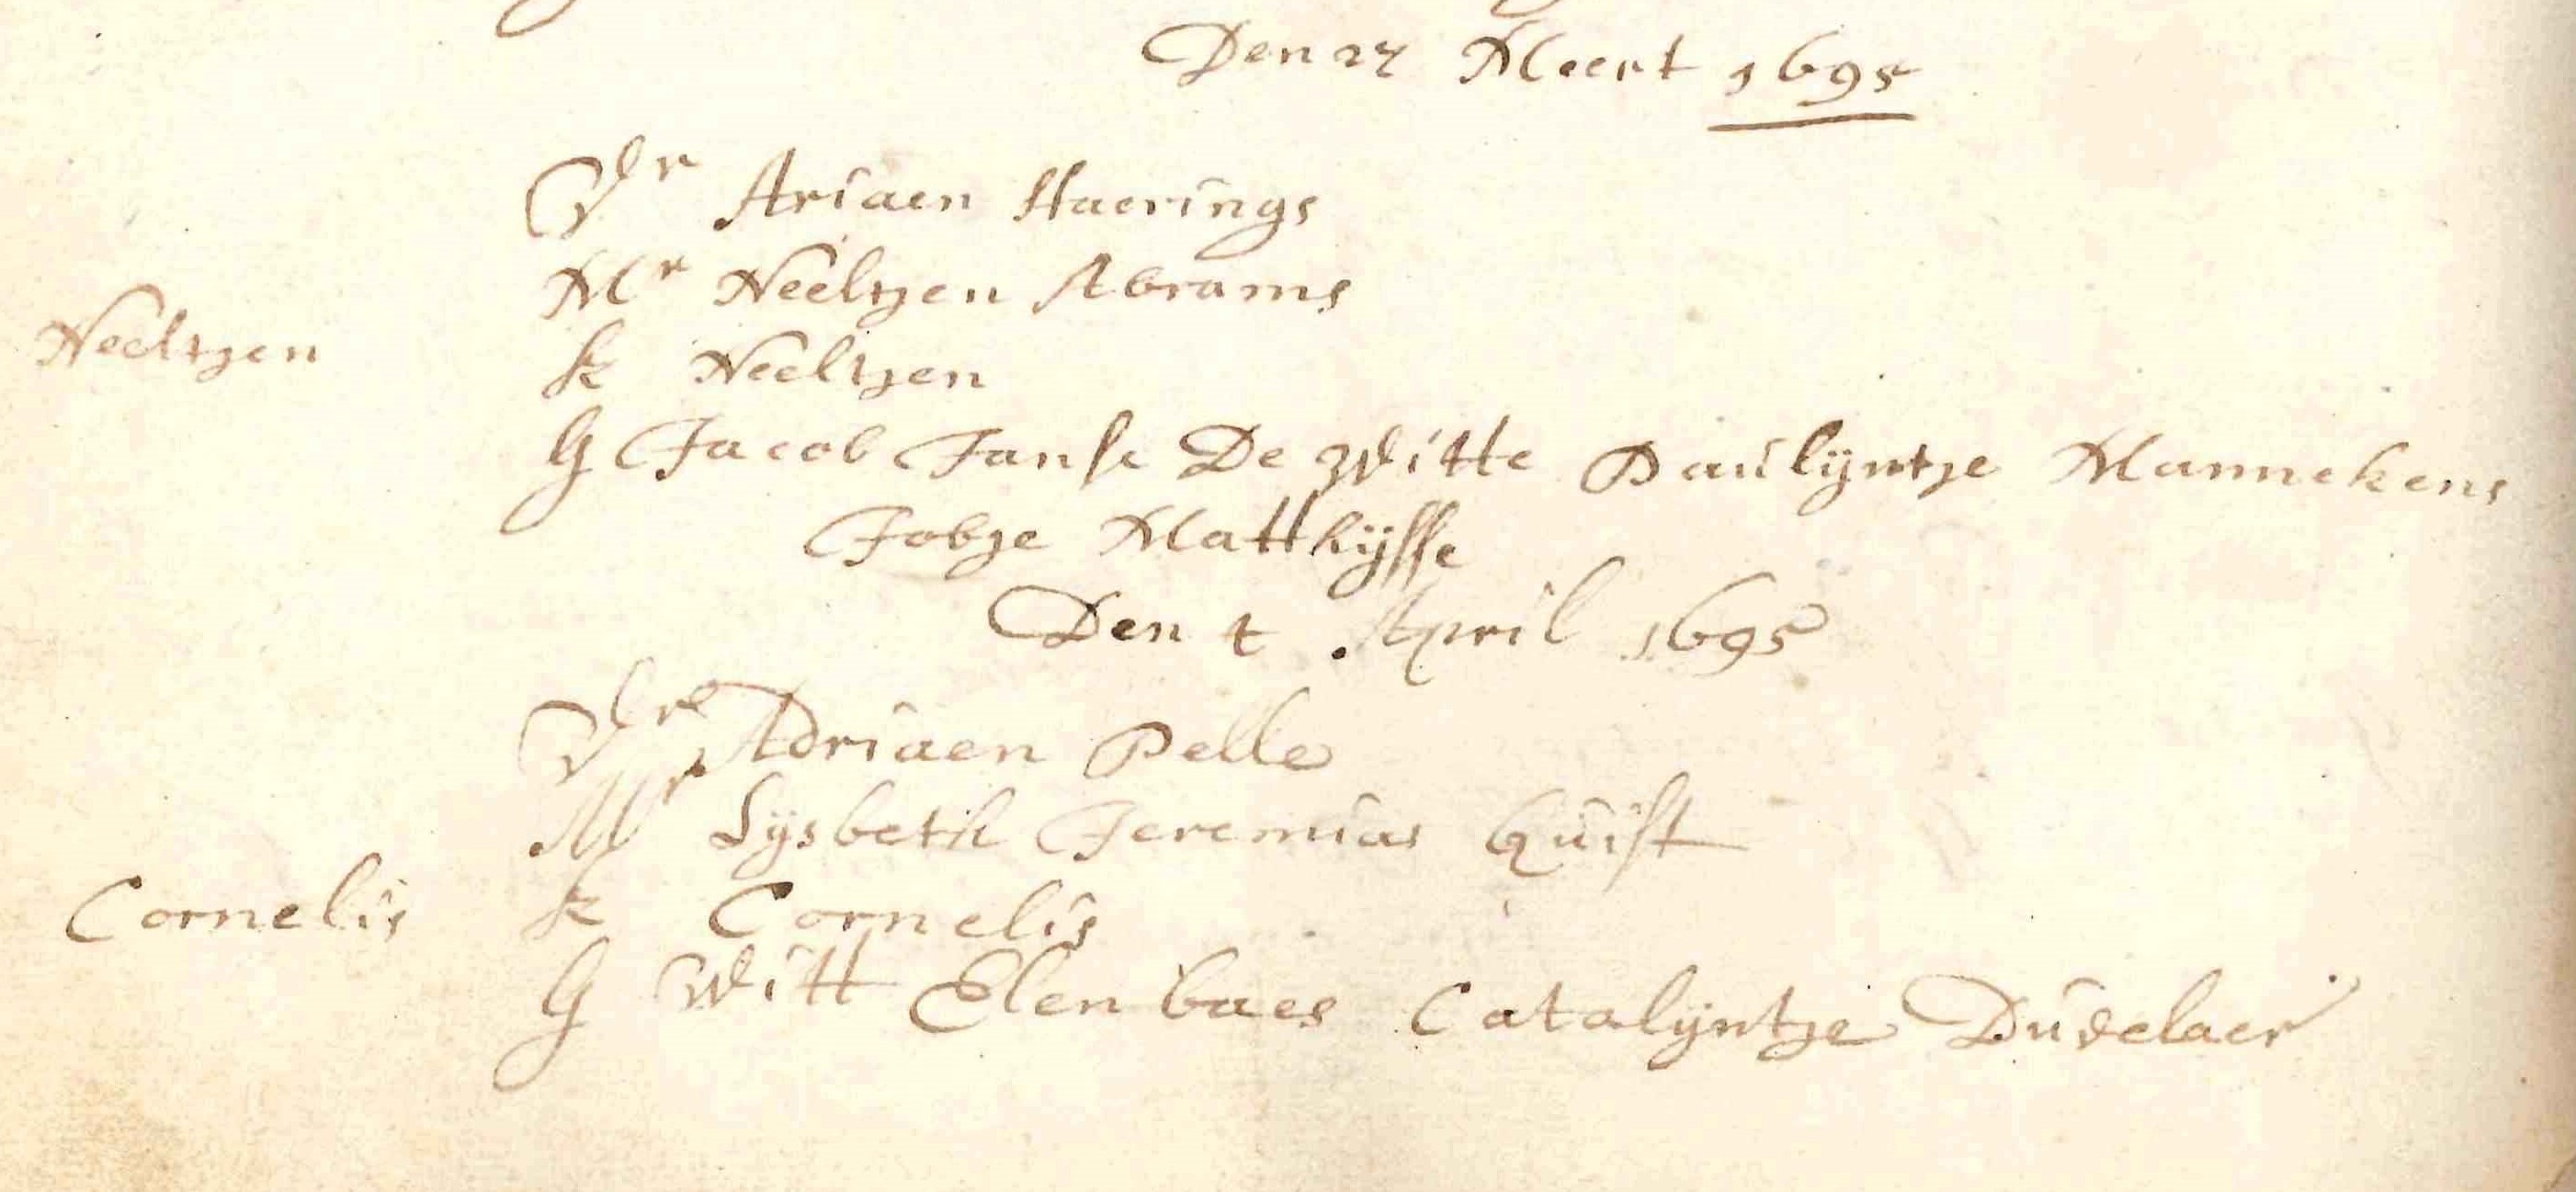 Den 27 Meert 1695
Vr Ariaen Haerings
Mr Neeltjen Abrams
Neeltjen
k Neeltjen
G Jacob Janse De Witte Paulijntje Mannekens
Jobje Matthijsse
Den April 1695
Vr Adriaen Pelle
Mr Lijsbeth Jeremias Quist
Cornelis
k Cornelis
G Witt Elenbaes Catalijntje Duvelaer